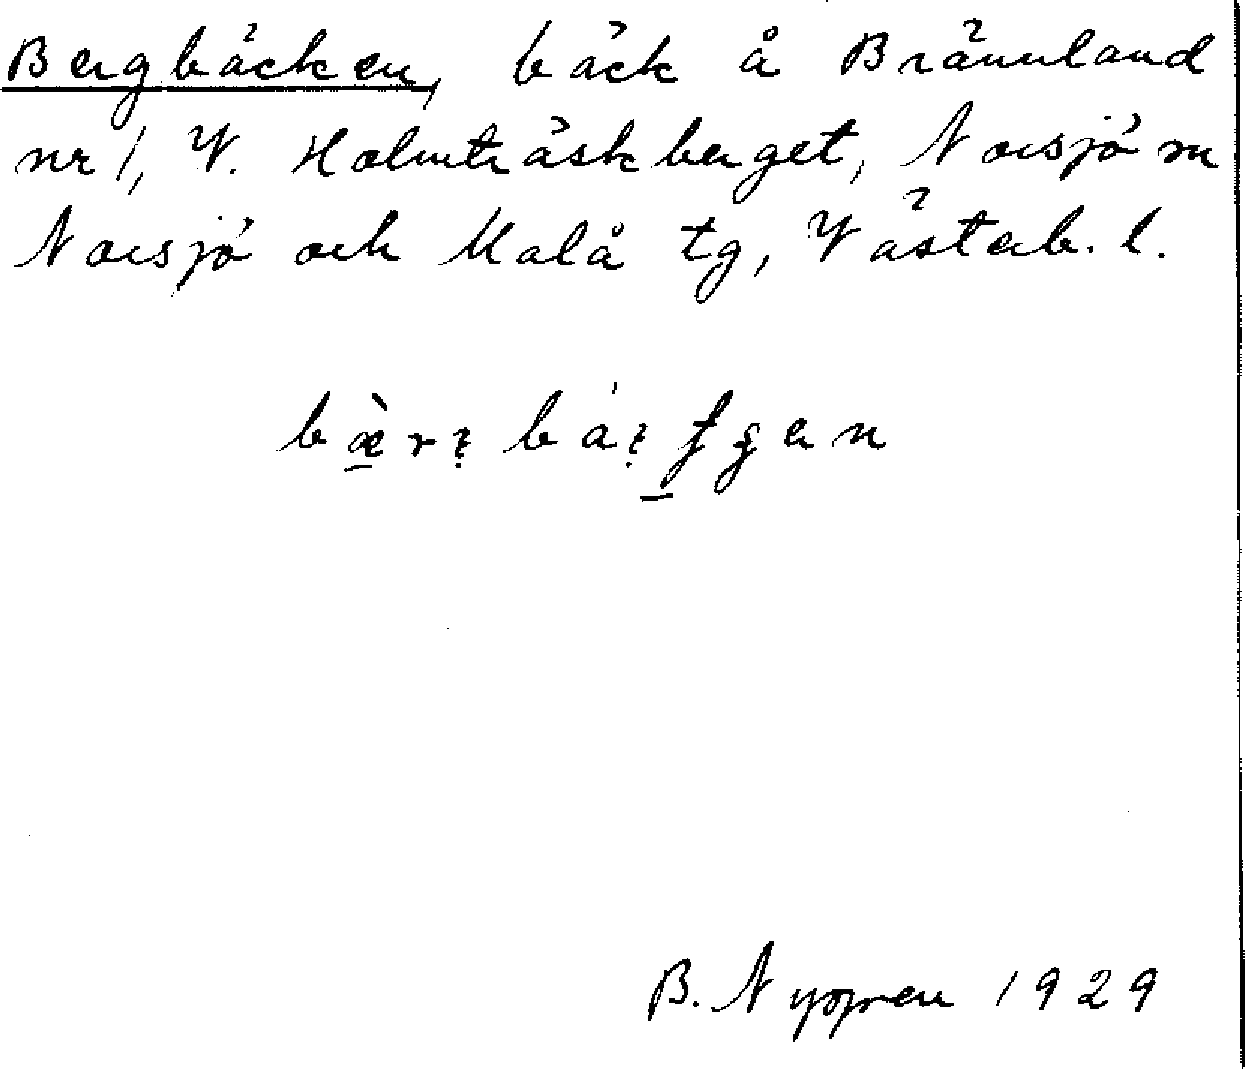 Bergbäcken, bäck å Brännland
nr 1, V. Holmträskberget, Norsjö sn
Norsjö och Malå tg, Västerb. l.
B. Nygren 1929